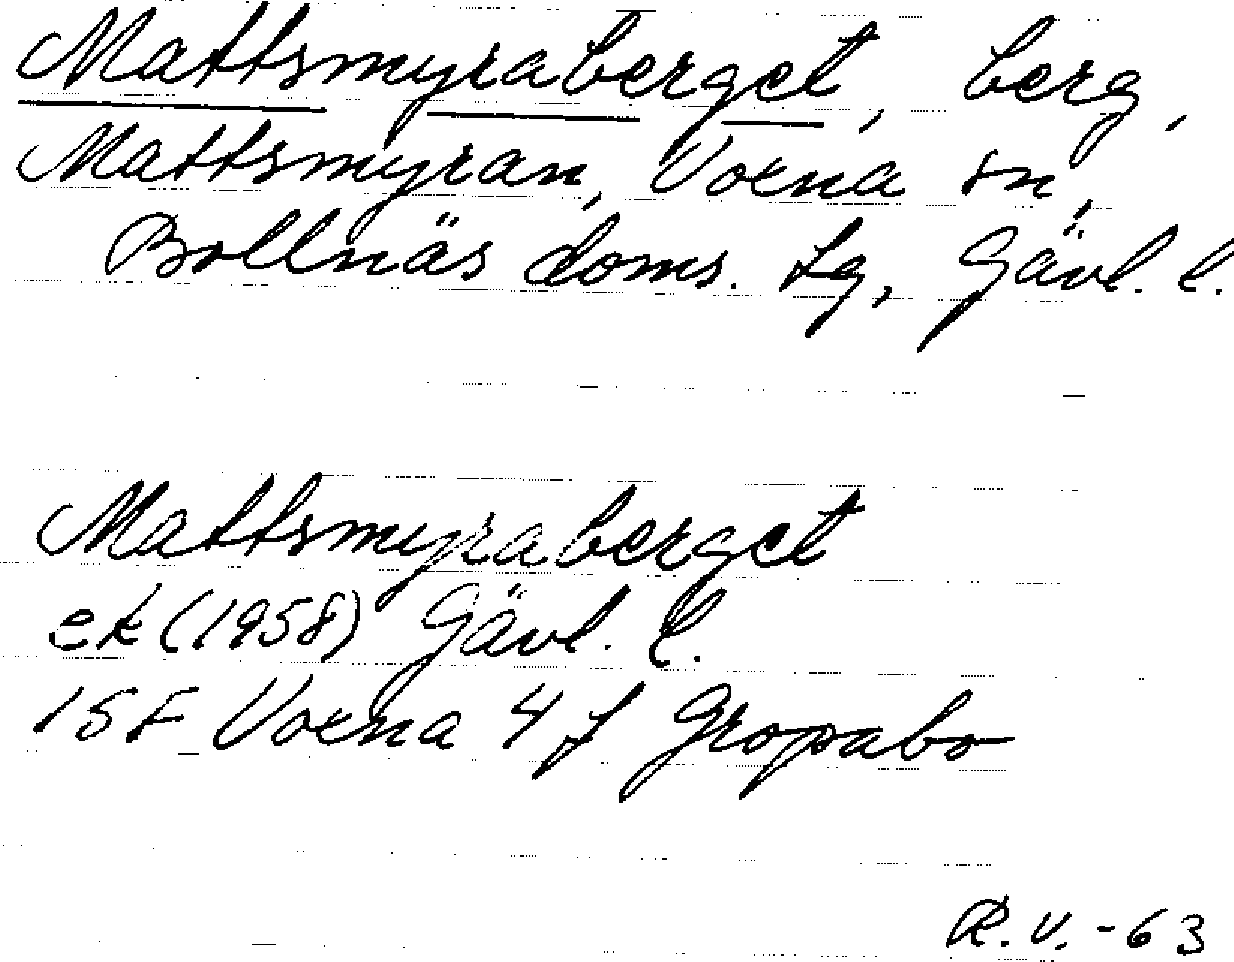 Mattsmyraberget, berg,
Mattsmyran, Voxna sn,
Bollnäs doms. tg, Gävl. l.
Mattsmyraberget
ek (1958) Gävl. l.
15F Voxna 4f Gropabo
R.V. -63